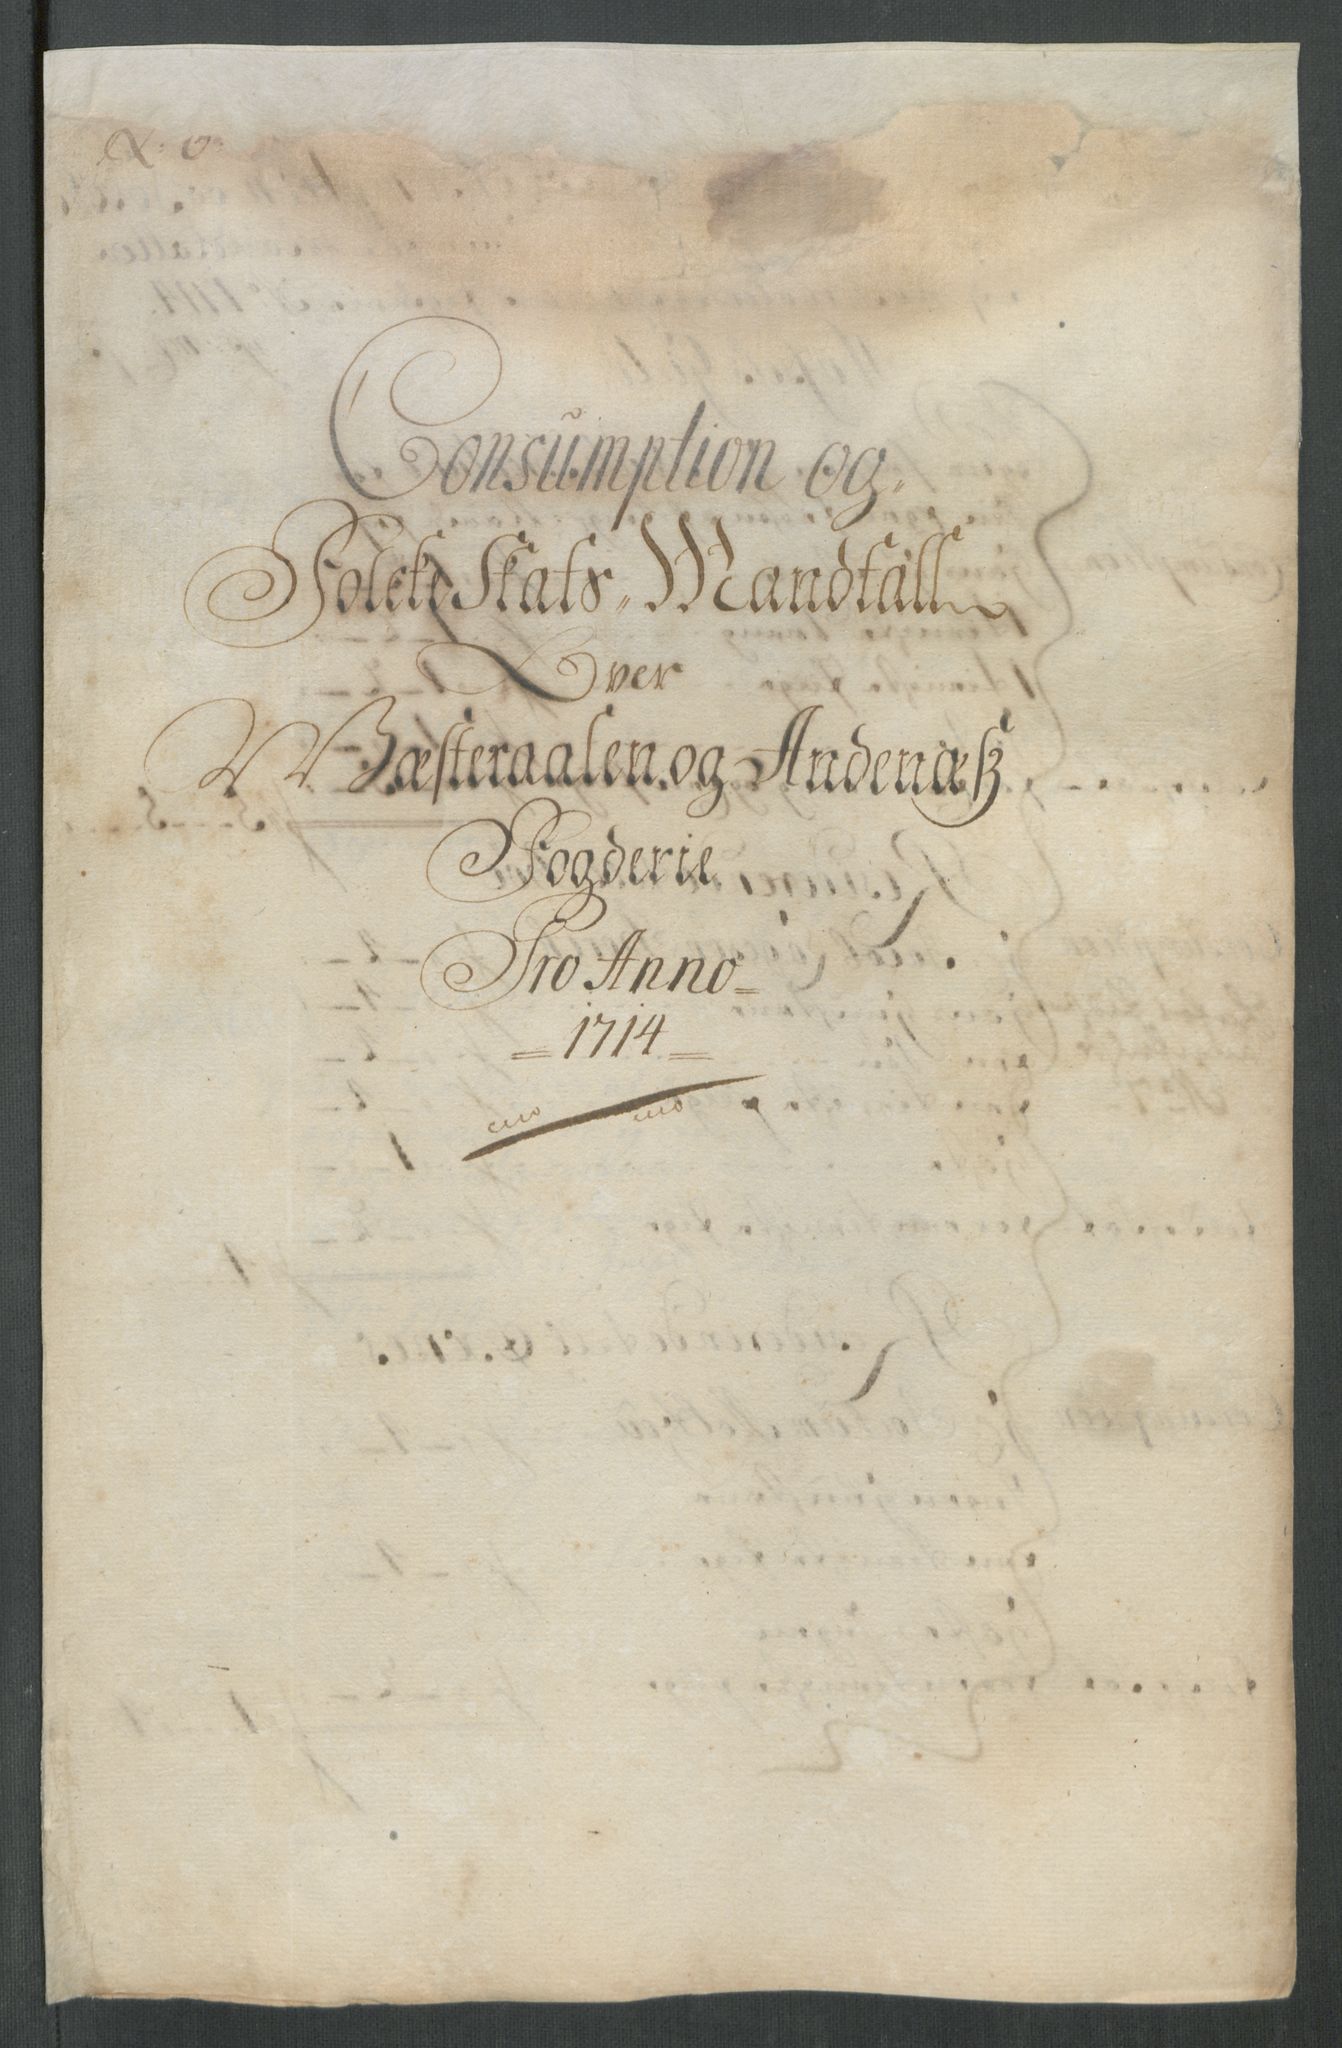 Consumption og
Folcke Skats Mandtall
Over
Wæsteraalen og Andenæs
Fogderie
Pro Anno
1714